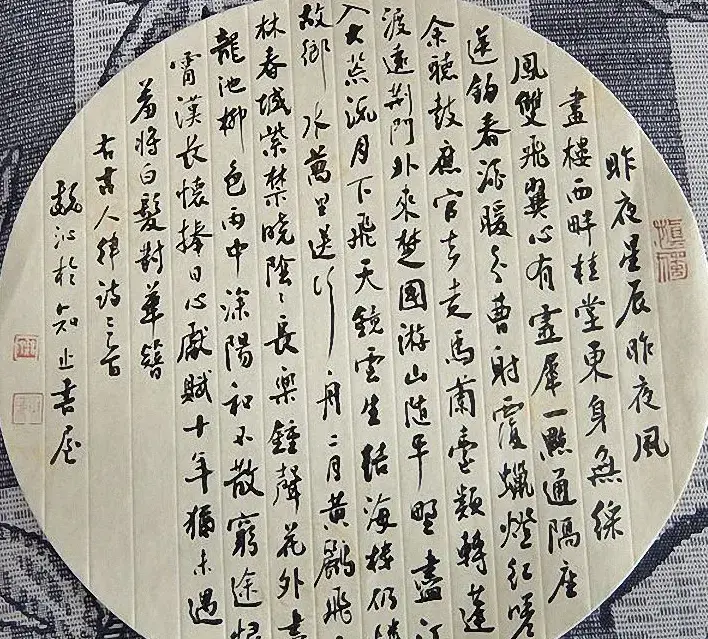 昨夜星辰昨夜風
畫樓西畔桂堂東身無綵
鳳雙飛翼心有靈犀一點通隔座
送鈎春酒暖分曹射覆蠟燈紅嗟
余聽鼓應官去走馬蘭臺類轉蓬
渡遠荊門外來楚國游山随平野盡江
入大荒流月下飛天鏡雲生結海樓仍憐
故鄉水萬里送行舟二月黃鸝飛
林春城紫禁曉陰〻長樂鍾聲花外盡
龍池柳色雨中深陽和不散窮途恨
霄漢長懷捧日心獻賦十年猶未遇
羞將白髮對華簪
右古人律詩三首
於知止書屋